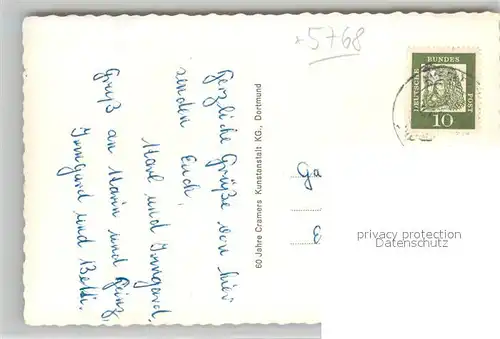 +5768
DEUTSCHE BUNDES POST
10
Herzliche Grüße von hier
senden Euch
Karl und Irmgard.
Gruß an Karin und Heinz,
Irmgard und Betti.
60 Jahre Cramers Kunstanstalt KG., Dortmund
privacy protection
Datenschutz